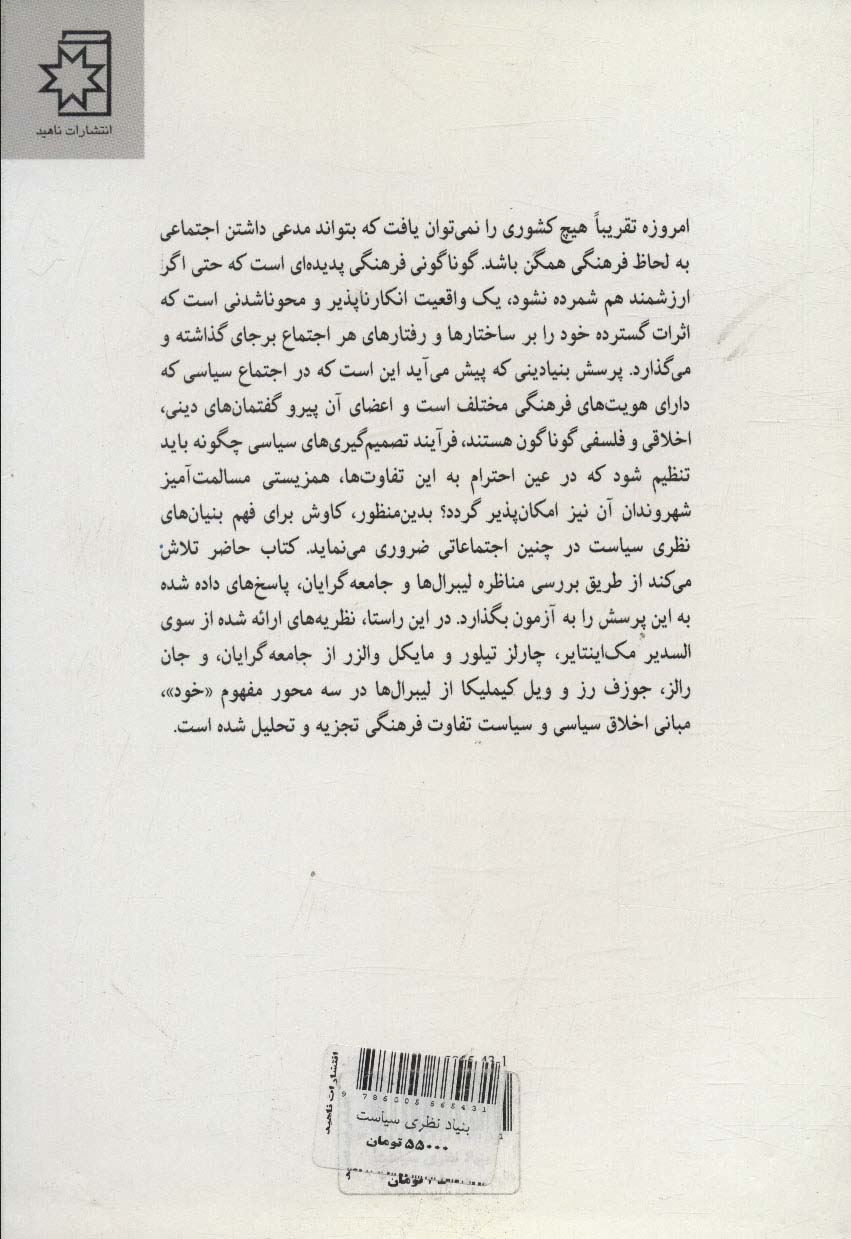 انتشارات ناهید
امروزه تقریباً هیچ کشوری را نمی‌توان یافت که بتواند مدعی داشتن اجتماعی
به لحاظ فرهنگی همگن باشد. گوناگونی فرهنگی پدیده‌ای است که حتی اگر
ارزشمند هم شمرده نشود، یک واقعیت انکارناپذیر و محوناشدنی است که
اثرات گسترده خود را بر ساختارها و رفتارهای هر اجتماع برجای گذاشته و
می‌گذارد. پرسش بنیادینی که پیش می‌آید این است که در اجتماع سیاسی که
دارای هویت‌های فرهنگی مختلف است و اعضای آن پیرو گفتمان‌های دینی،
اخلاقی و فلسفی گوناگون هستند، فرآیند تصمیم‌گیری‌های سیاسی چگونه باید
تنظیم شود که در عین احترام به این تفاوت‌ها، همزیستی مسالمت‌آمیز
شهروندان آن نیز امکان‌پذیر گردد؟ بدین‌منظور، کاوش برای فهم بنیان‌های
نظری سیاست در چنین اجتماعاتی ضروری می‌نماید. کتاب حاضر تلاش
می‌کند از طریق بررسی مناظره لیبرال‌ها و جامعه‌گرایان، پاسخ‌های داده شده
به این پرسش را به آزمون بگذارد. در این راستا، نظریه‌های ارائه شده از سوی
السدیر مک‌اینتایر، چارلز تیلور و مایکل والزر از جامعه‌گرایان، و جان
رالز، جوزف رز و ویل کیملیکا از لیبرال‌ها در سه محور مفهوم «خود»،
مبانی اخلاق سیاسی و سیاست تفاوت فرهنگی تجزیه و تحلیل شده است.
انتشارات ناهید
9 786005 865431
بنیاد نظری سیاست
۵۵۰۰۰ تومان
تومان